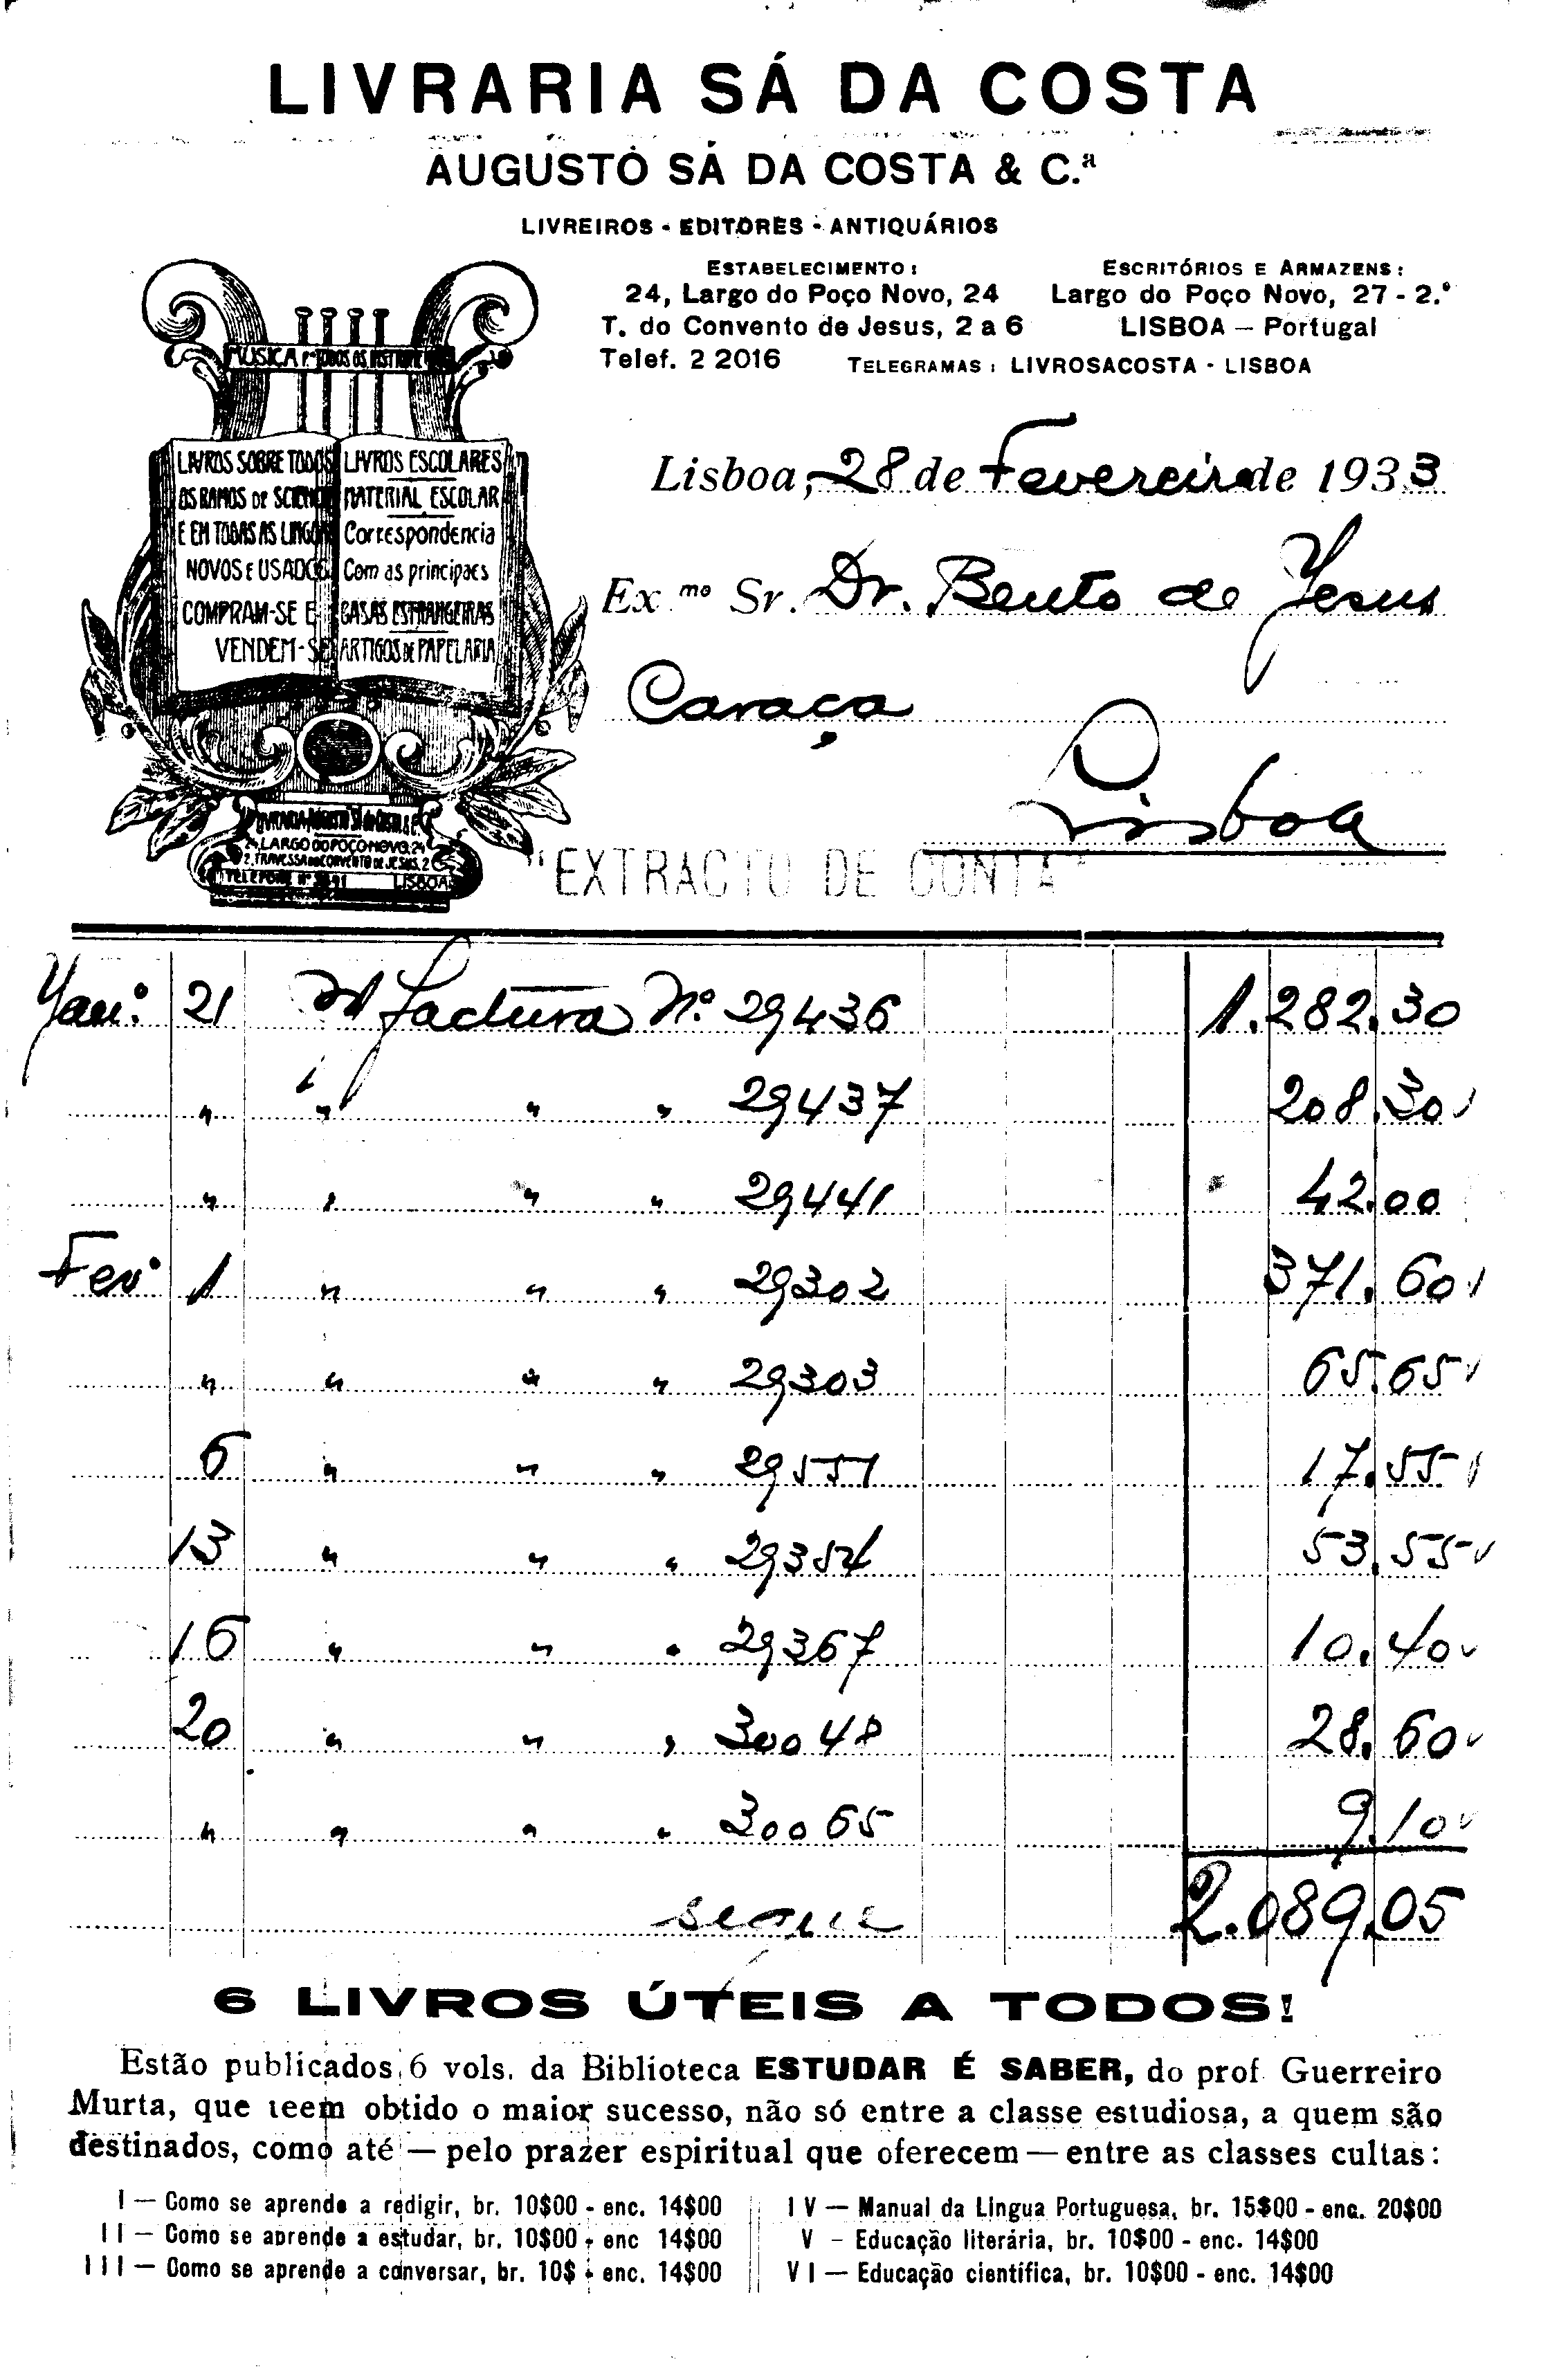 LIVRARIA SÁ DA COSTA
AUGUSTO SÁ DA COSTA & C.ª
LIVREIROS - EDITORES - ANTIQUÁRIOS
ESTABELECIMENTO:
24, Largo do Poço Novo, 24
T. do Convento de Jesus, 2 a 6
Telef. 2 2016
ESCRITÓRIOS E ARMAZENS:
Largo do Poço Novo, 27 - 2.º
LISBOA — Portugal
TELEGRAMAS: LIVROSACOSTA - LISBOA
MUSICA PARA TODOS OS
LIVROS SOBRE TODOS
OS RAMOS DE SCIENCIA
E EM TODAS AS LINGOAS
NOVOS E USADOS
COMPRAM-SE E
VENDEM-SE
LIVROS ESCOLARES
MATERIAL ESCOLAR
Correspondencia
Com as principaes
CASAS ESTRANGEIRAS
ARTIGOS DE PAPELARIA
24, LARGO DO POÇO NOVO, 24
2, TRAVESSA DO CONVENTO DE JESUS, 2
LISBOA
Lisboa, 28 de Fevereiro de 1933
Ex.mo Sr. Dr. Bento de Jesus
Caraça
Lisboa
"EXTRACTO DE CONTA"
Jan.º 21 factura N.º 29436 1.282.30
" " " " 29437 208.30
" " " " 29441 42.00
Fev.º 1 " " " 29302 371.60
" " " " 29303 65.65
6 " " " 29551 17.55
13 " " " 29354 53.55
16 " " " 29367 10.40
20 " " " 30048 28.60
" " " " 30065 9.10
segue 2.089.05
6 LIVROS ÚTEIS A TODOS!
Estão publicados 6 vols. da Biblioteca ESTUDAR É SABER, do prof. Guerreiro
Murta, que teem obtido o maior sucesso, não só entre a classe estudiosa, a quem são
destinados, como até — pelo prazer espiritual que oferecem — entre as classes cultas:
I — Como se aprende a redigir, br. 10$00 - enc. 14$00
II — Como se aprende a estudar, br. 10$00 - enc 14$00
III — Como se aprende a conversar, br. 10$ - enc. 14$00
IV — Manual da Lingua Portuguesa, br. 15$00 - enc. 20$00
V - Educação literária, br. 10$00 - enc. 14$00
VI — Educação científica, br. 10$00 - enc. 14$00